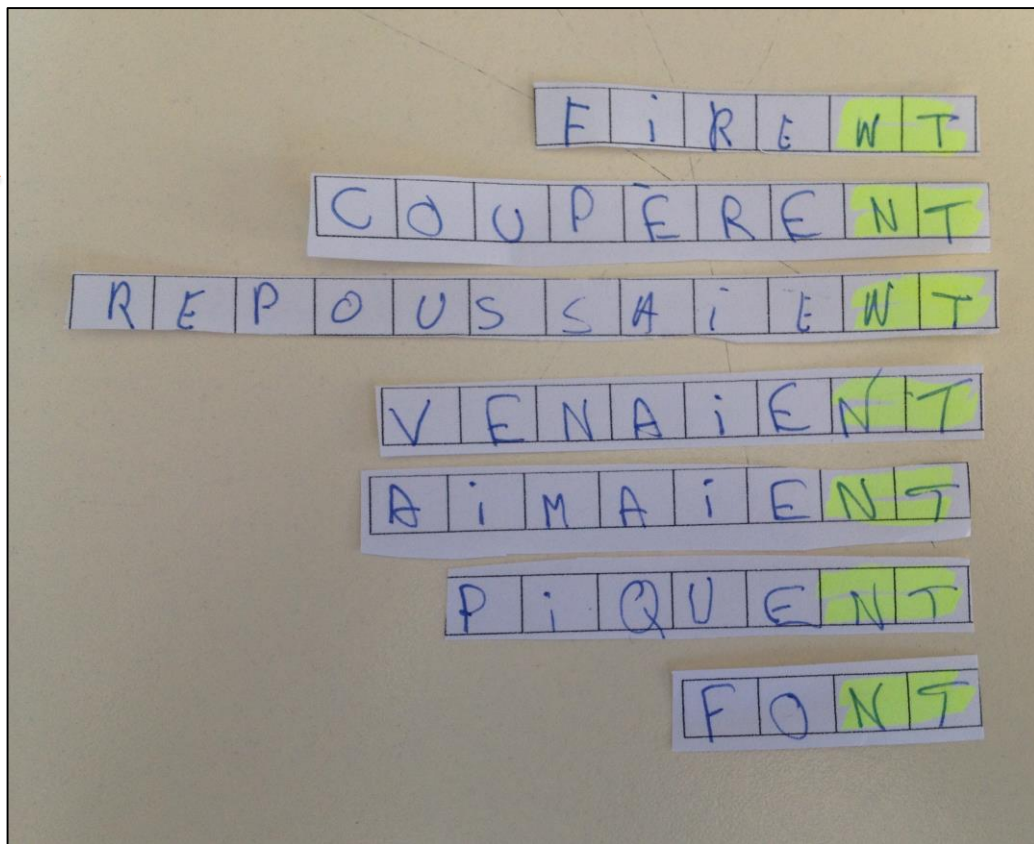 FiRENT
COUPÈRENT
REPOUSSAiENT
VENAiENT
AiMAiENT
PiQUENT
FONT